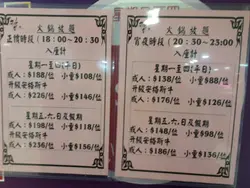 火鍋放題
正餐時段 (18:00~20:30)
入座計
星期一至四(平日)
成人：$188/位 小童$108/位
升級安格斯牛
成人：$226/位 小童$146/位
星期五.六.日及假期
成人：$198/位 小童$118/位
升級安格斯牛
成人：$236/位 小童$156/位
火鍋放題
宵夜時段 (20:30~23:00)
入座計
星期一至四(平日)
成人：$138/位 小童$88/位
升級安格斯牛
成人：$176/位 小童$126/位
星期五.六.日及假期
成人：$148/位 小童$98/位
升級安格斯牛
成人：$186/位 小童$136/位